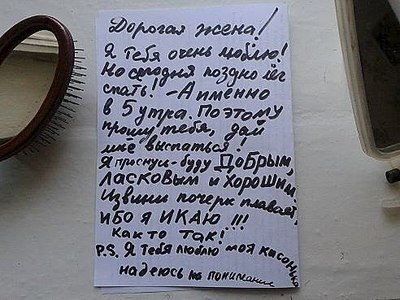 Дорогая жена!
Я тебя очень люблю!
Но сегодня поздно лёг
спать! - А именно
в 5 утра. Поэтому
прошу тебя, дай
мне выспаться!
Я проснусь - буду ДОБРЫМ,
ЛАСКОВЫМ и ХОРОШИМ
Извини почерк плавает,
ибо я ИКАЮ!!!
Как то так!...
P.S. Я тебя люблю моя
надеюсь на понимание